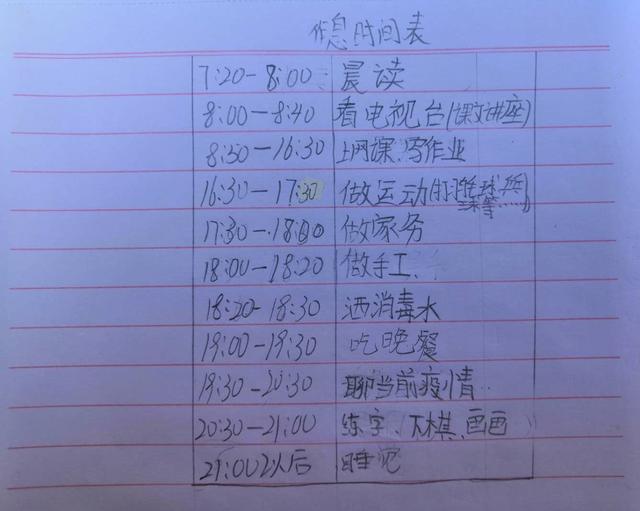 作息时间表
7:20-8:00 晨读
8:00-8:40 看电视台(课文讲座)
8:50-16:30 上网课、写作业
16:30-17:30 做运动(打球等……)
17:30-18:00 做家务
18:00-18:20 做手工、
18:20-18:30 洒消毒水
19:00-19:30 吃晚餐
19:30-20:30 聊当前疫情
20:30-21:00 练字、下棋、画画
21:00以后 睡觉